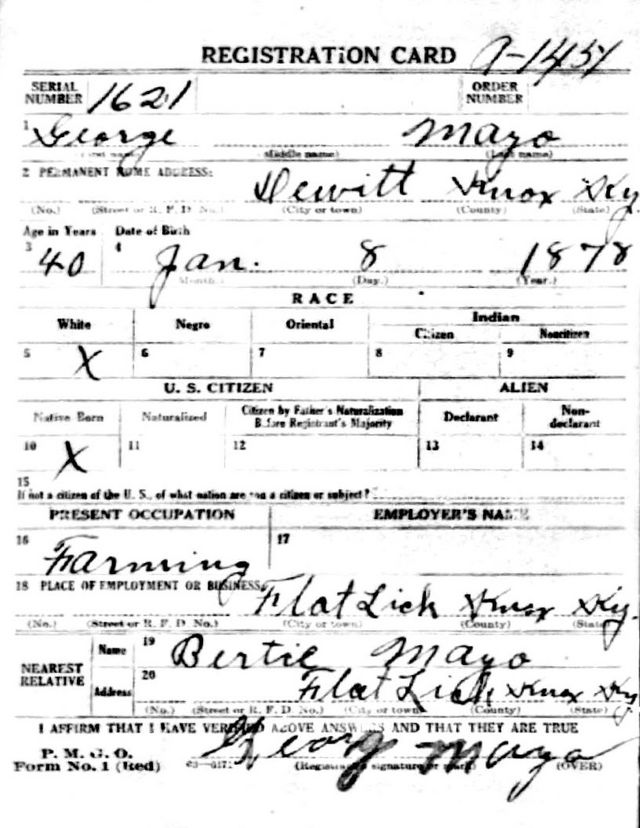 REGISTRATION CARD A-1451
SERIAL NUMBER 1621 ORDER NUMBER
1 George Mayo
(First name) (Middle name) (Last name)
2 PERMANENT HOME ADDRESS:
Dewitt Knox Ky
(No.) (Street or R. F. D. No.) (City or town) (County) (State)
Age in Years Date of Birth
3 40 4 Jan. 8 1878
(Month.) (Day.) (Year.)
RACE
White Negro Oriental Indian
Citizen Noncitizen
5 X 6 7 8 9
U. S. CITIZEN ALIEN
Native Born Naturalized Citizen by Father's Naturalization Before Registrant's Majority Declarant Non-declarant
10 X 11 12 13 14
15
If not a citizen of the U. S., of what nation are you a citizen or subject?
PRESENT OCCUPATION EMPLOYER'S NAME
16 Farming 17
18 PLACE OF EMPLOYMENT OR BUSINESS:
Flat Lick Knox Ky.
(No.) (Street or R. F. D. No.) (City or town) (County) (State)
NEAREST RELATIVE
Name 19 Bertie Mayo
Address 20 Flat Lick Knox Ky
(No.) (Street or R. F. D. No.) (City or town) (County) (State)
I AFFIRM THAT I HAVE VERIFIED ABOVE ANSWERS AND THAT THEY ARE TRUE
P. M. G. O.
Form No. 1 (Red) George Mayo
(Registrant's signature or mark) (OVER)